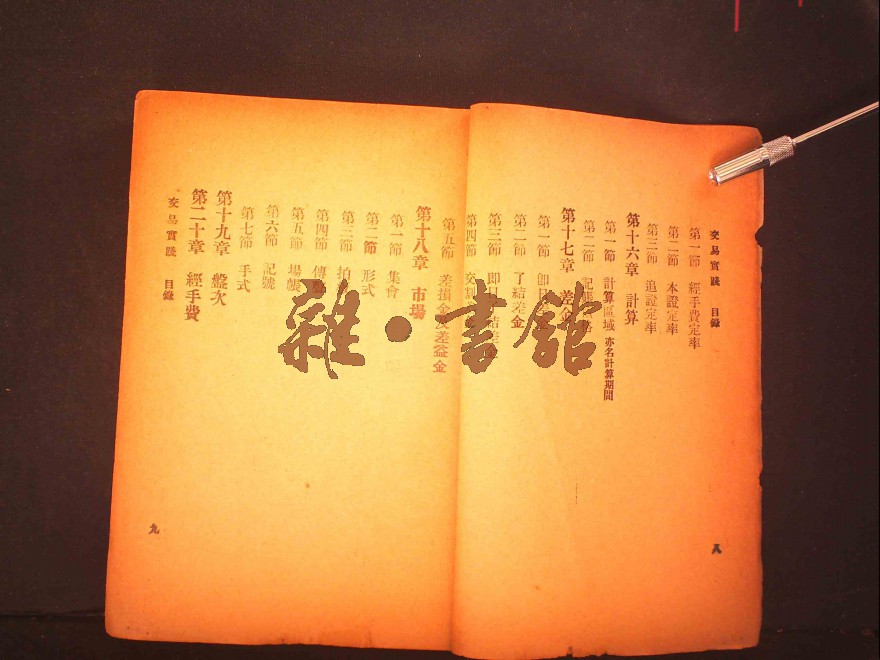 交易實踐 目錄
第一節 經手費定率
第二節 本證定率
第三節 追證定率
第十六章 計算
第一節 計算區域 亦名計算期間
第二節 記
第十七章 差金
第一節 即日
第二節 了結差金
第三節 即日 結差
第四節 交割
八
第五節 差損金及差益金
第十八章 市場
第一節 集會
第二節 形式
第三節 拍
第四節 傳
第五節 場帳
第六節 記號
第七節 手式
第十九章 盤次
第二十章 經手費
交易實踐 目錄
九
雜·書館